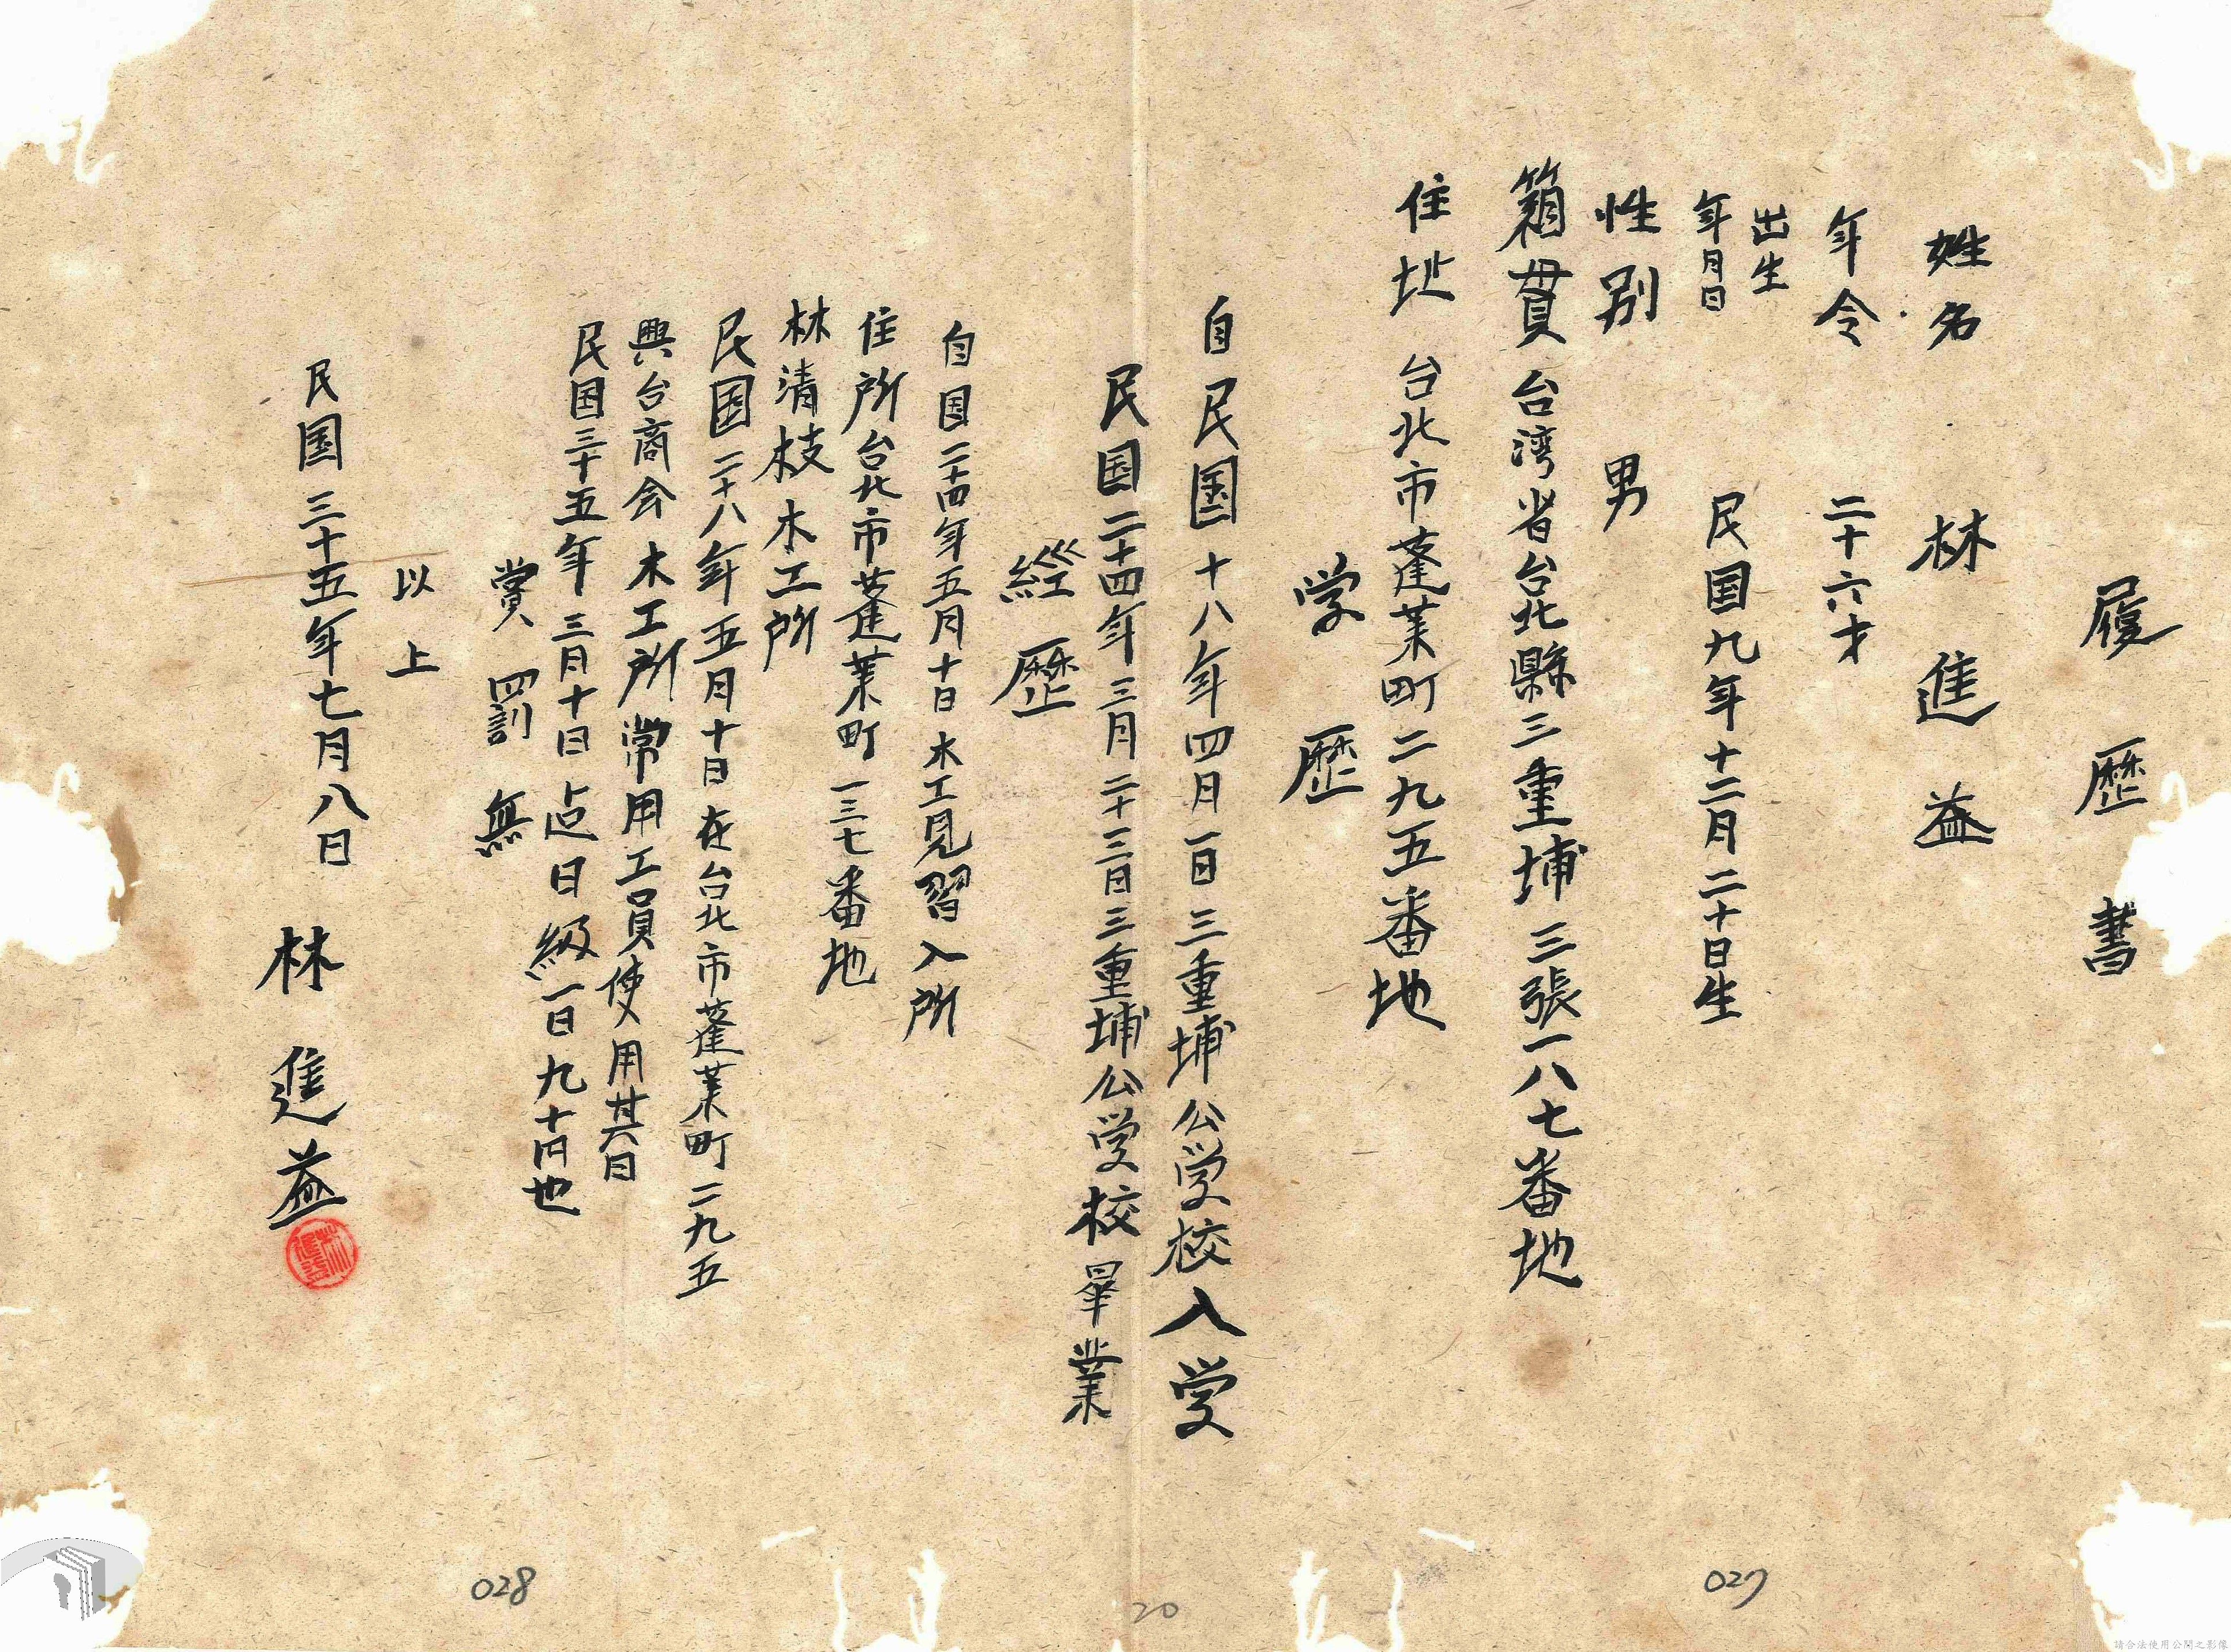 履歴書
姓名 林進益
年令 二十六才
出生
年月日 民国九年十二月二十日生
性别 男
籍貫 台湾省台北縣三重埔三張一八七番地
住址 台北市蓬莱町二九五番地
学歴
自民国十八年四月一日三重埔公学校入学
民国二十四年三月二十三日三重埔公学校畢業
經歴
自国二十四年五月十日木工見習入所
住所台北市蓬莱町一三七番地
林清枝木工所
民国二十八年五月十日在台北市蓬莱町二九五
興台商会木工所常用工員使用其日
民国三十五年三月十日迠日級一日九十円也
賞罰無
以上
民国三十五年七月八日 林進益
028
20
027
請合法使用公開之影像